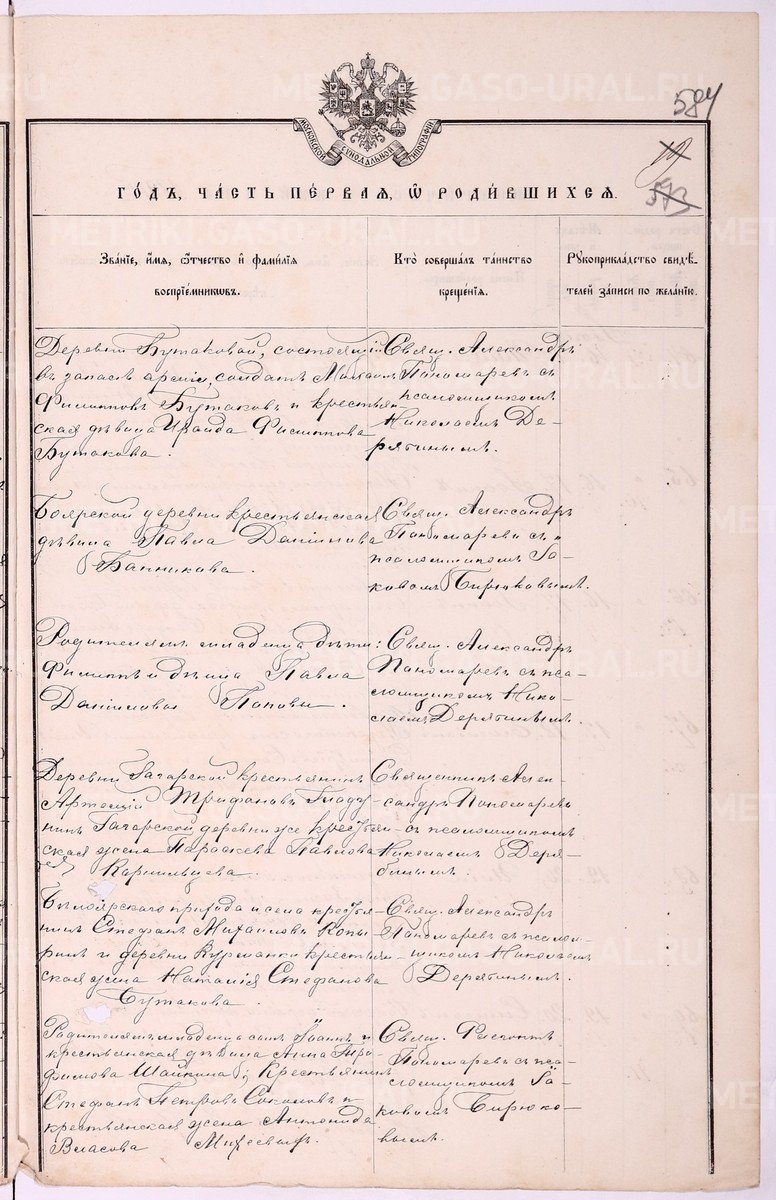 METRIKI.GASO-URAL.RU
584
573
МОСКОВСКОЙ СѴНОДАЛЬНОЙ ТИПОГРАФІИ
ГО́ДЪ, ЧА́СТЬ ПЕ́РВАЯ, Ѿ РОДИ́ВШИХСЯ.
Зва́нїе, и҆́мѧ, ѻ҆́тчество и҆ фами́лїѧ
воспрїе́мникѡвъ.
Кто̀ соверша́лъ та́инство
креще́нїѧ.
Рꙋкоприкла́дство свидѣ́-
телей за́писи по жела́нїю.
Деревни Бутаковой, состоящій
въ запасѣ арміи, солдатъ Михаилъ
Филипповъ Бутаковъ и крестьян-
ская дѣвица Ираида Филиппова
Бутакова.
Свящ. Александръ
Пономаревъ съ
псаломщикомъ
Николаемъ Де-
рябинымъ.
Боярской деревни крестьянская
дѣвица Павла Даніилова
Банникова.
Свящ. Александръ
Пономаревъ съ
псаломщикомъ Іа-
ковомъ Бирюковымъ.
Родителямъ младенца дѣти:
Филиппъ и дѣвица Павла
Даніиловы Поповы.
Свящ. Александръ
Пономаревъ съ пса-
ломщикомъ Нико-
лаемъ Дерябинымъ.
Деревни Гагарской крестьянинъ
Артемій Трифановъ Гладу-
нинъ Гагарской деревни же крестьян-
ская жена Параскева Павлова
Кормильцева.
Священникъ Алек-
сандръ Пономаревъ
съ псаломщикомъ
Николаемъ Деря-
бинымъ.
Бѣлоярскаго прихода и села крестья-
нинъ Стефанъ Михаиловъ Копы-
ринъ и деревни Курманки крестьян-
ская жена Наталія Стефанова
Бутакова.
Свящ. Александръ
Пономаревъ съ псалом-
щикомъ Николаемъ
Дерябинымъ.
Родителямъ младенца сынъ Іоаннъ и
крестьянская дѣвица Анна Тро-
фимова Шайкина; Крестьянинъ
Стефанъ Петровъ Соколовъ и
крестьянская жена Антонида
Власова
Свящ. Филиппъ
Пономаревъ съ пса-
ломщикомъ Іа-
ковомъ Бирюко-
вымъ.